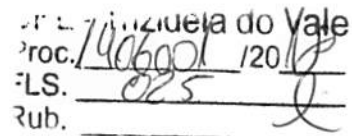 do Vale
Proc. 1406001 /2018
FLS. 025
Rub.